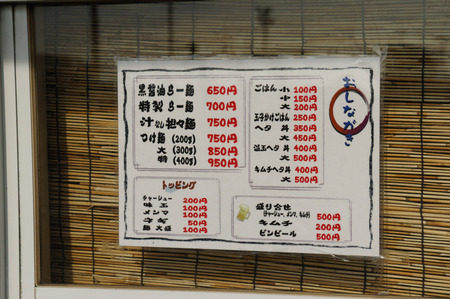 おしながき
黒醤油らー麺 650円
特製らー麺 700円
汁なし担々麺 750円
つけ麺 (200g) 750円
大 (300g) 850円
特 (400g) 950円
ごはん 小 100円
中 150円
大 200円
玉子かけごはん 250円
ヘタ 丼 350円
大 450円
温玉ヘタ 丼 400円
大 500円
キムチヘタ丼 400円
大 500円
トッピング
チャーシュー 200円
味玉 100円
メンマ 100円
ネギ 50円
麺 大盛 100円
盛り合せ
(チャーシュー、メンマ、キムチ) 500円
キムチ 200円
ビンビール 500円